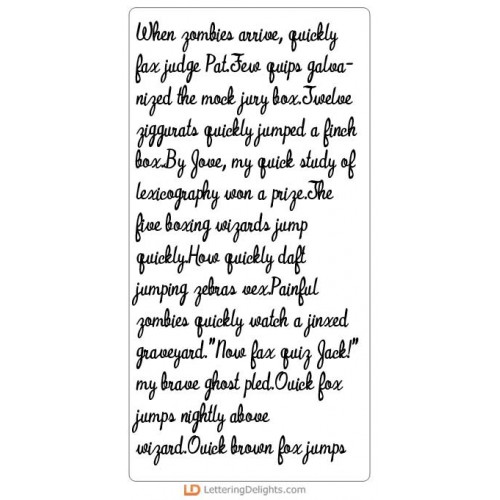 When zombies arrive, quickly
fax judge Pat.Few quips galva-
nized the mock jury box.Twelve
ziggurats quickly jumped a finch
box.By Jove, my quick study of
lexicography won a prize.The
five boxing wizards jump
quickly.How quickly daft
jumping zebras vex.Painful
zombies quickly watch a jinxed
graveyard."Now fax quiz Jack!"
my brave ghost pled.Quick fox
jumps nightly above
wizard.Quick brown fox jumps
LD LetteringDelights.com